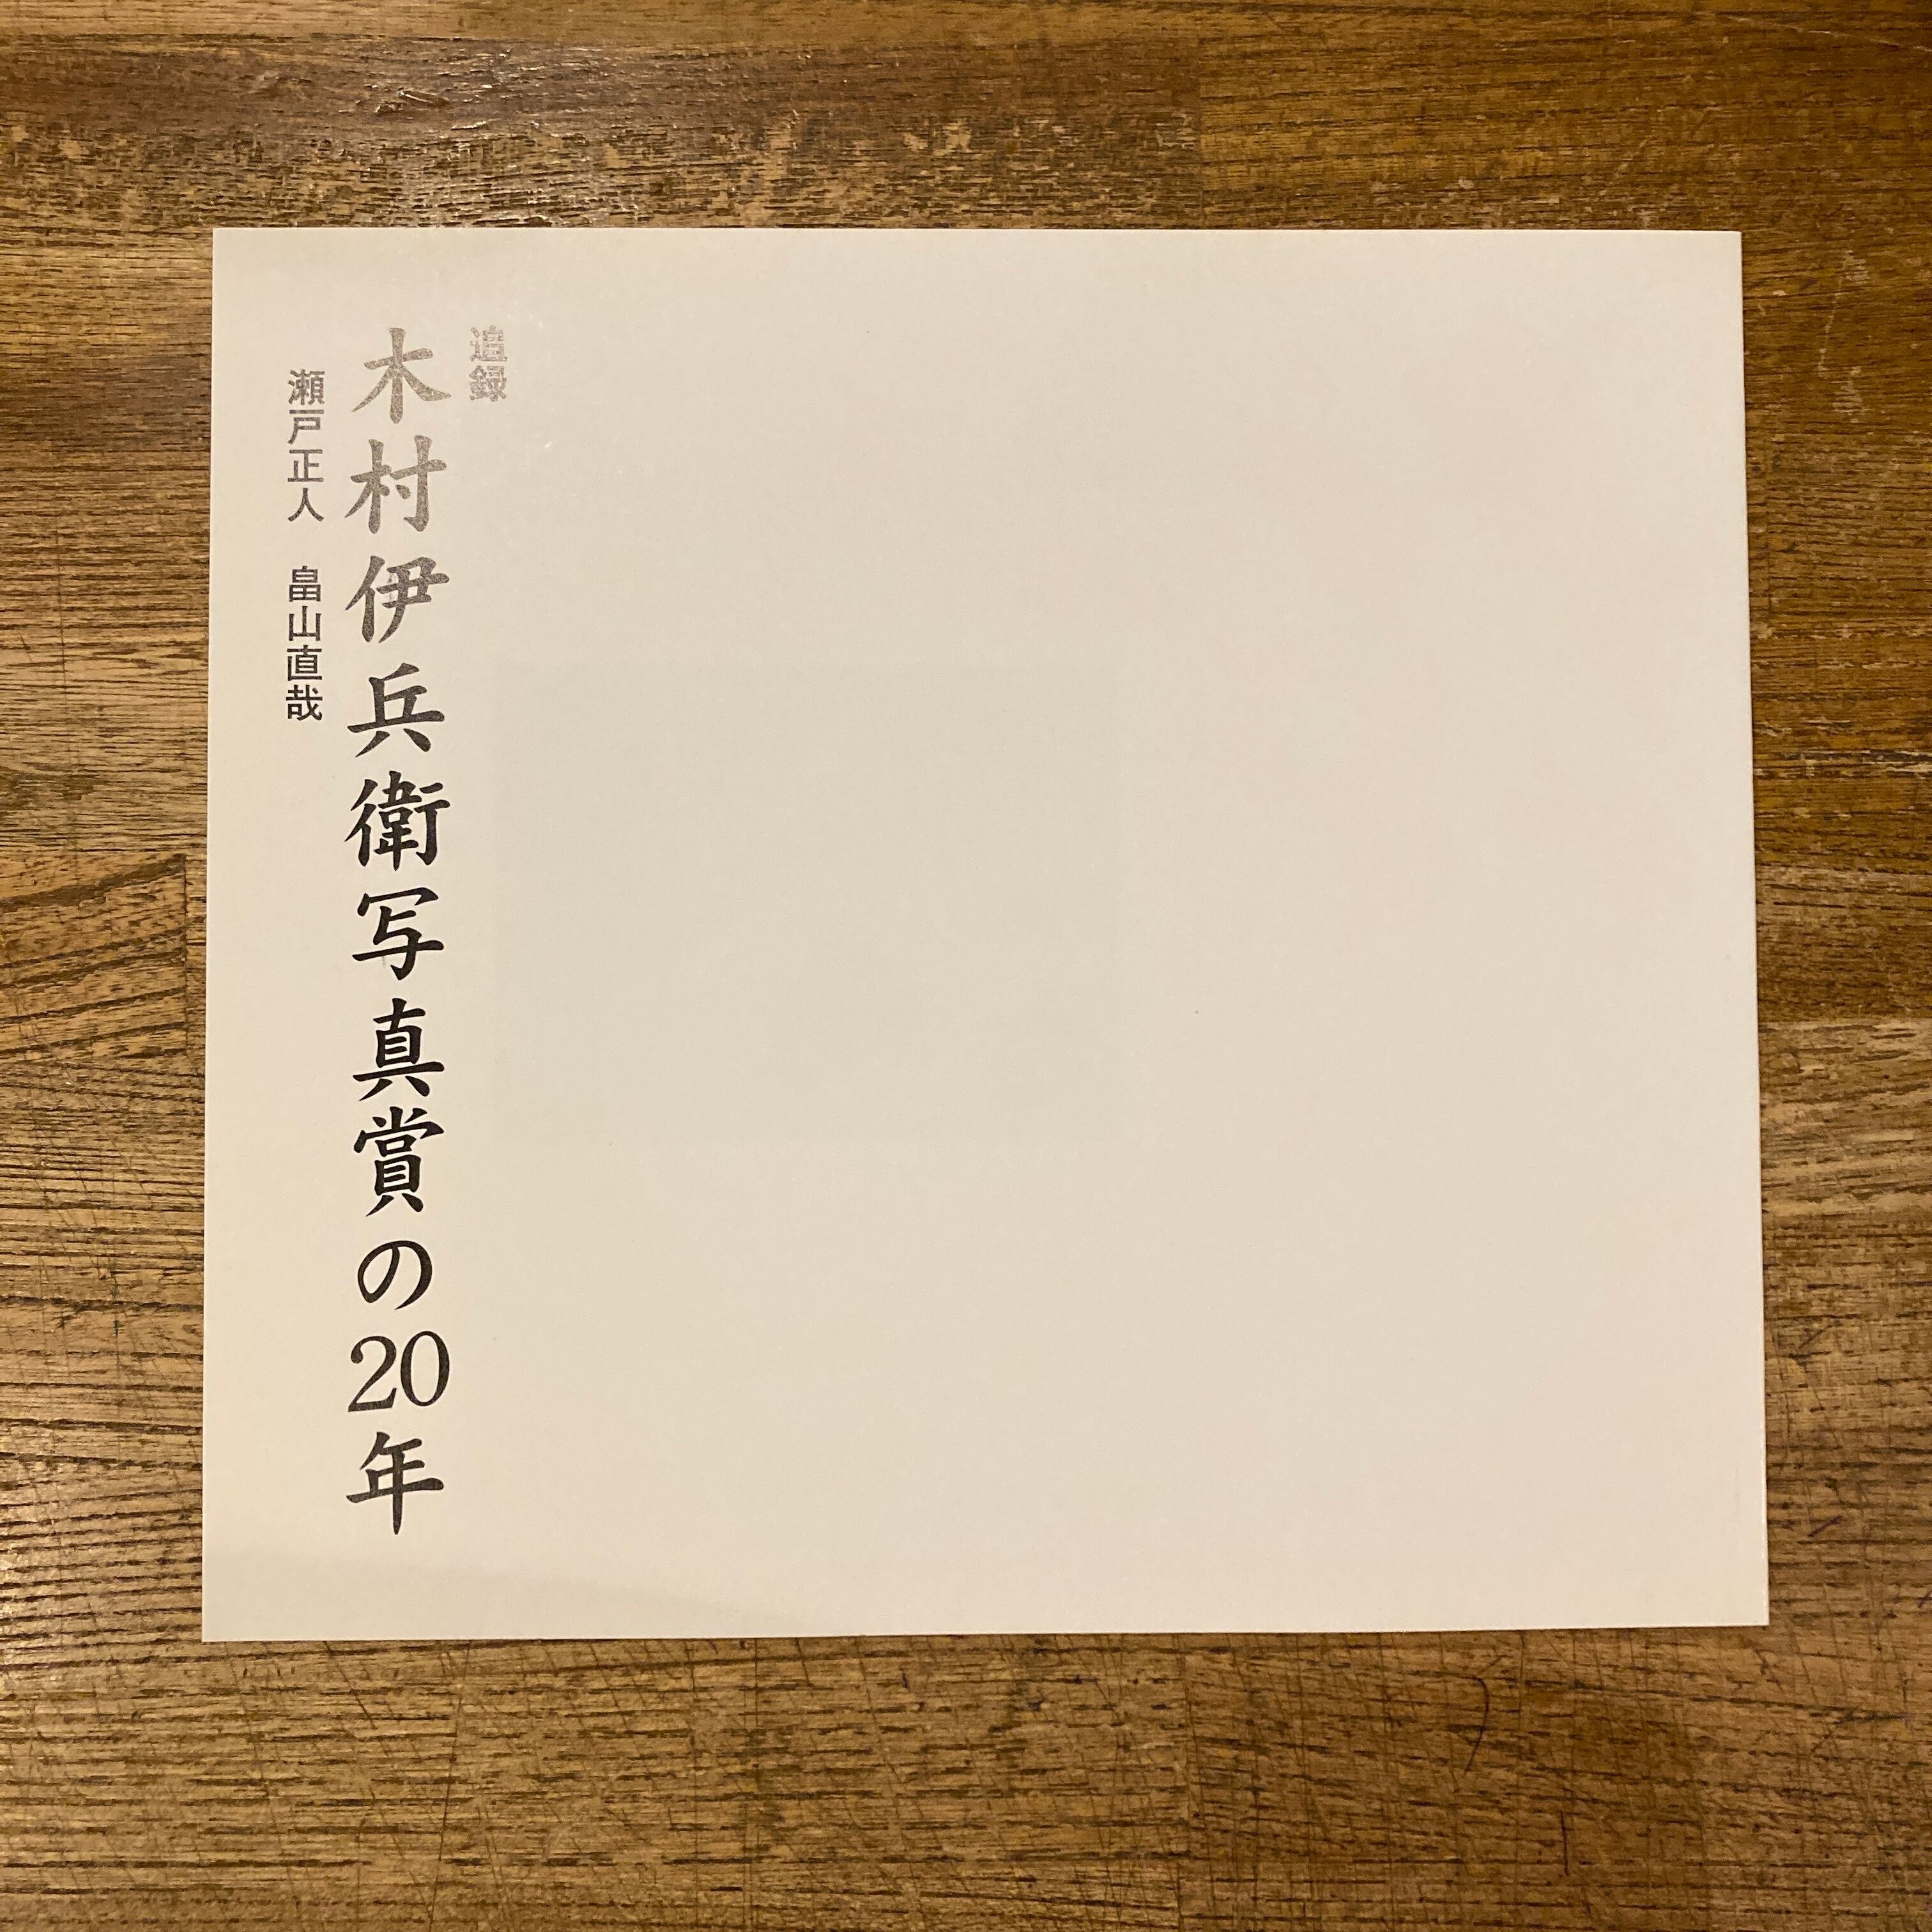 追録
木村伊兵衛写真賞の20年
瀬戸正人 畠山直哉